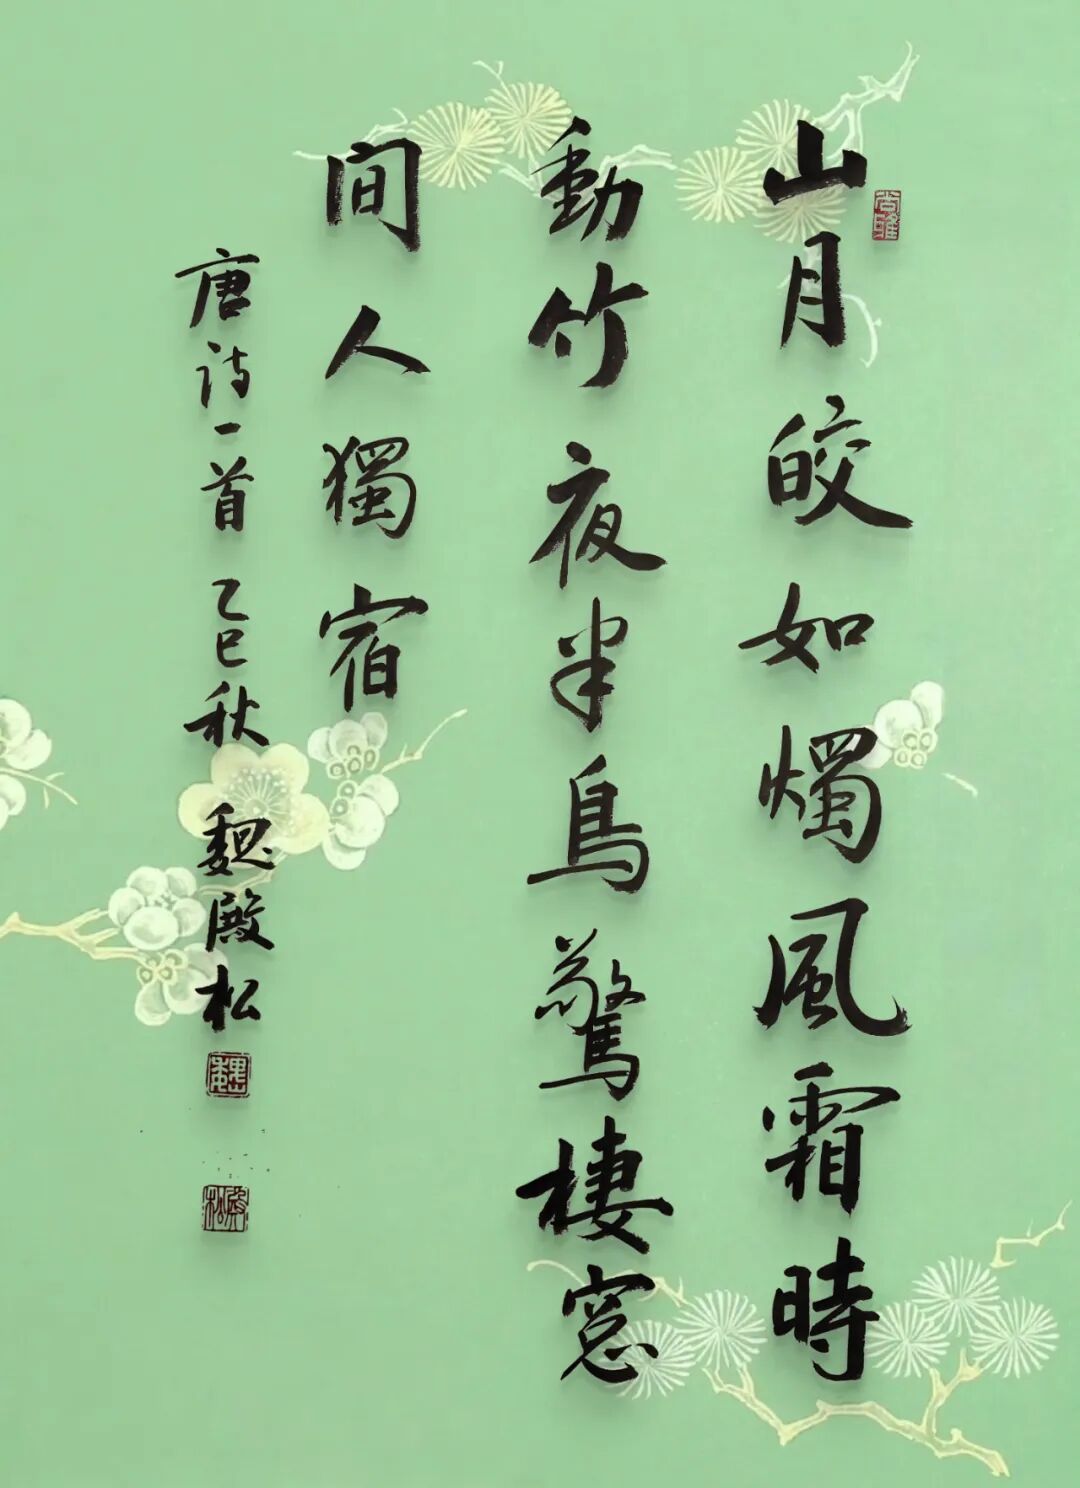 山月皎如燭風霜時
動竹夜半鳥驚棲窓
间人獨宿
唐诗一首 乙巳秋 魏殿松
尚雅
魏
殿松